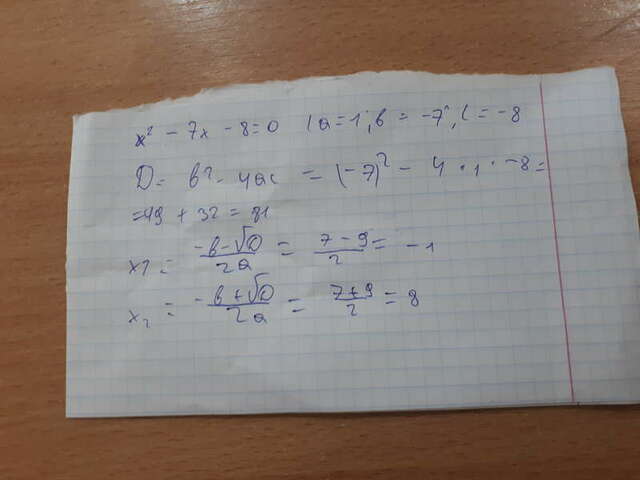 x² - 7x - 8 = 0 | a = 1; в = -7; c = -8
D = в² - 4ac = (-7)² - 4 · 1 · -8 =
= 49 + 32 = 81
x1 = (-в - √D) / 2a = (7 - 9) / 2 = -1
x₂ = (-в + √D) / 2a = (7 + 9) / 2 = 8